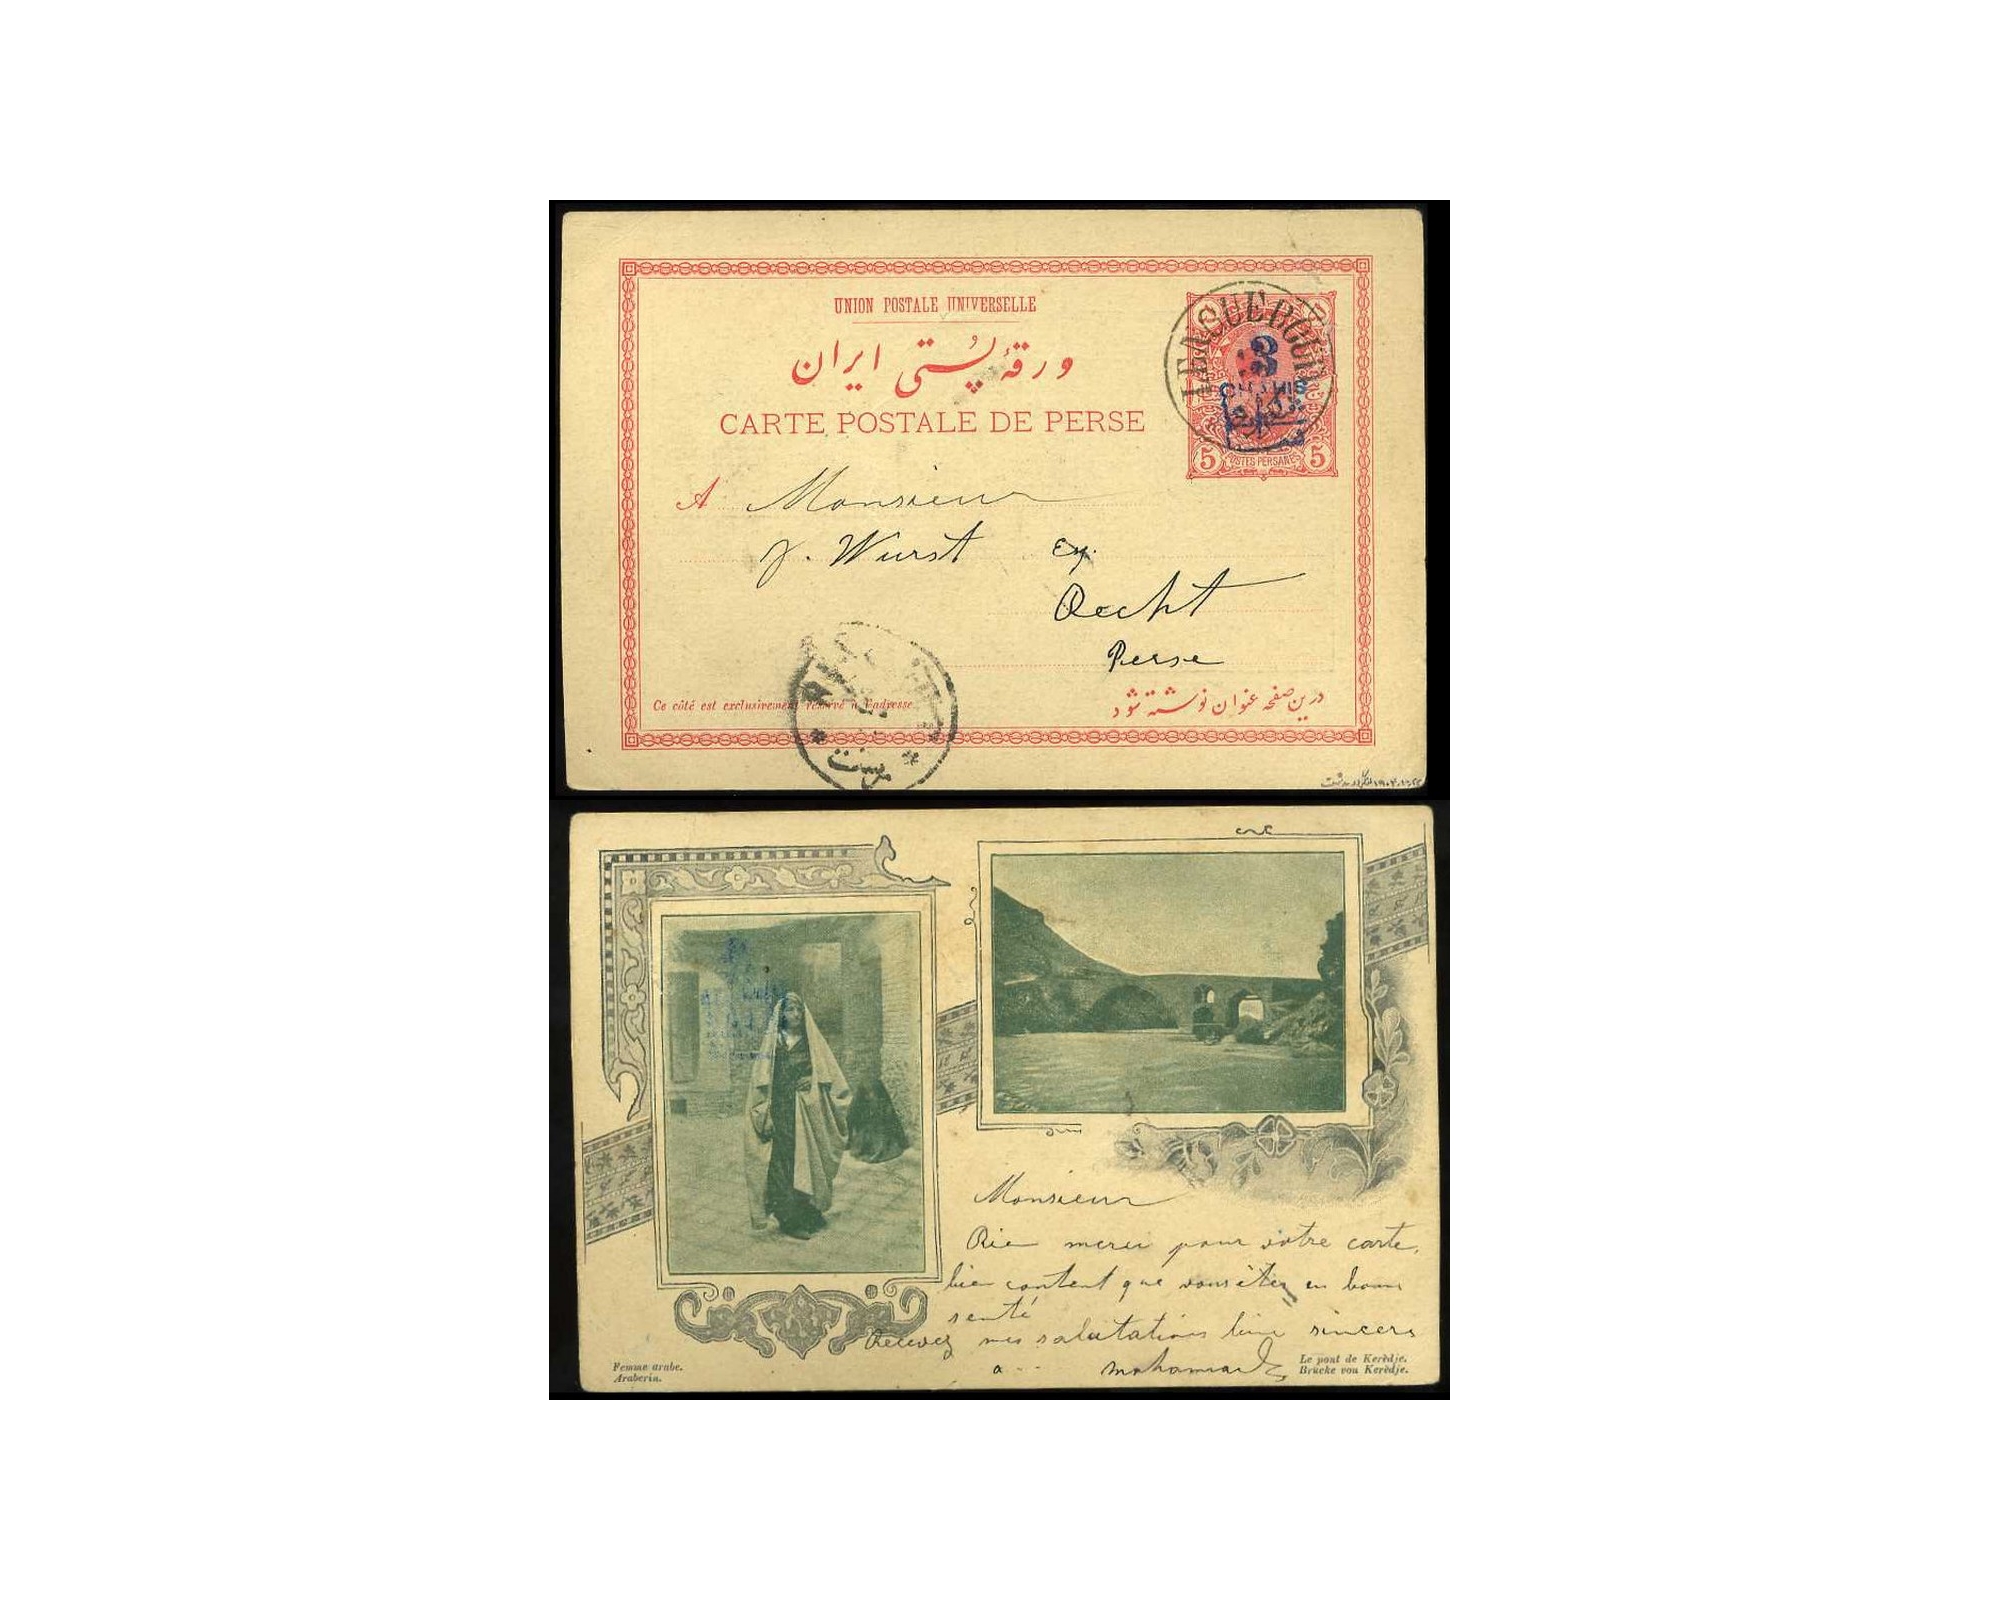 UNION POSTALE UNIVERSELLE
ورقهٔ پستی ایران
CARTE POSTALE DE PERSE
3
CHAHIS
5 POSTES PERSANES 5
A Monsieur
J. Wurst
Recht
Perse
Ce côté est exclusivement réservé à l'adresse.
درین صفحه عنوان نوشته شود
Monsieur
merci pour votre carte,
bien content que vous êtez en bonne
senté
Recevez mes salutations bien sincers
Femme arabe.
Araberin.
Le pont de Kerèdje.
Brücke von Kerèdje.